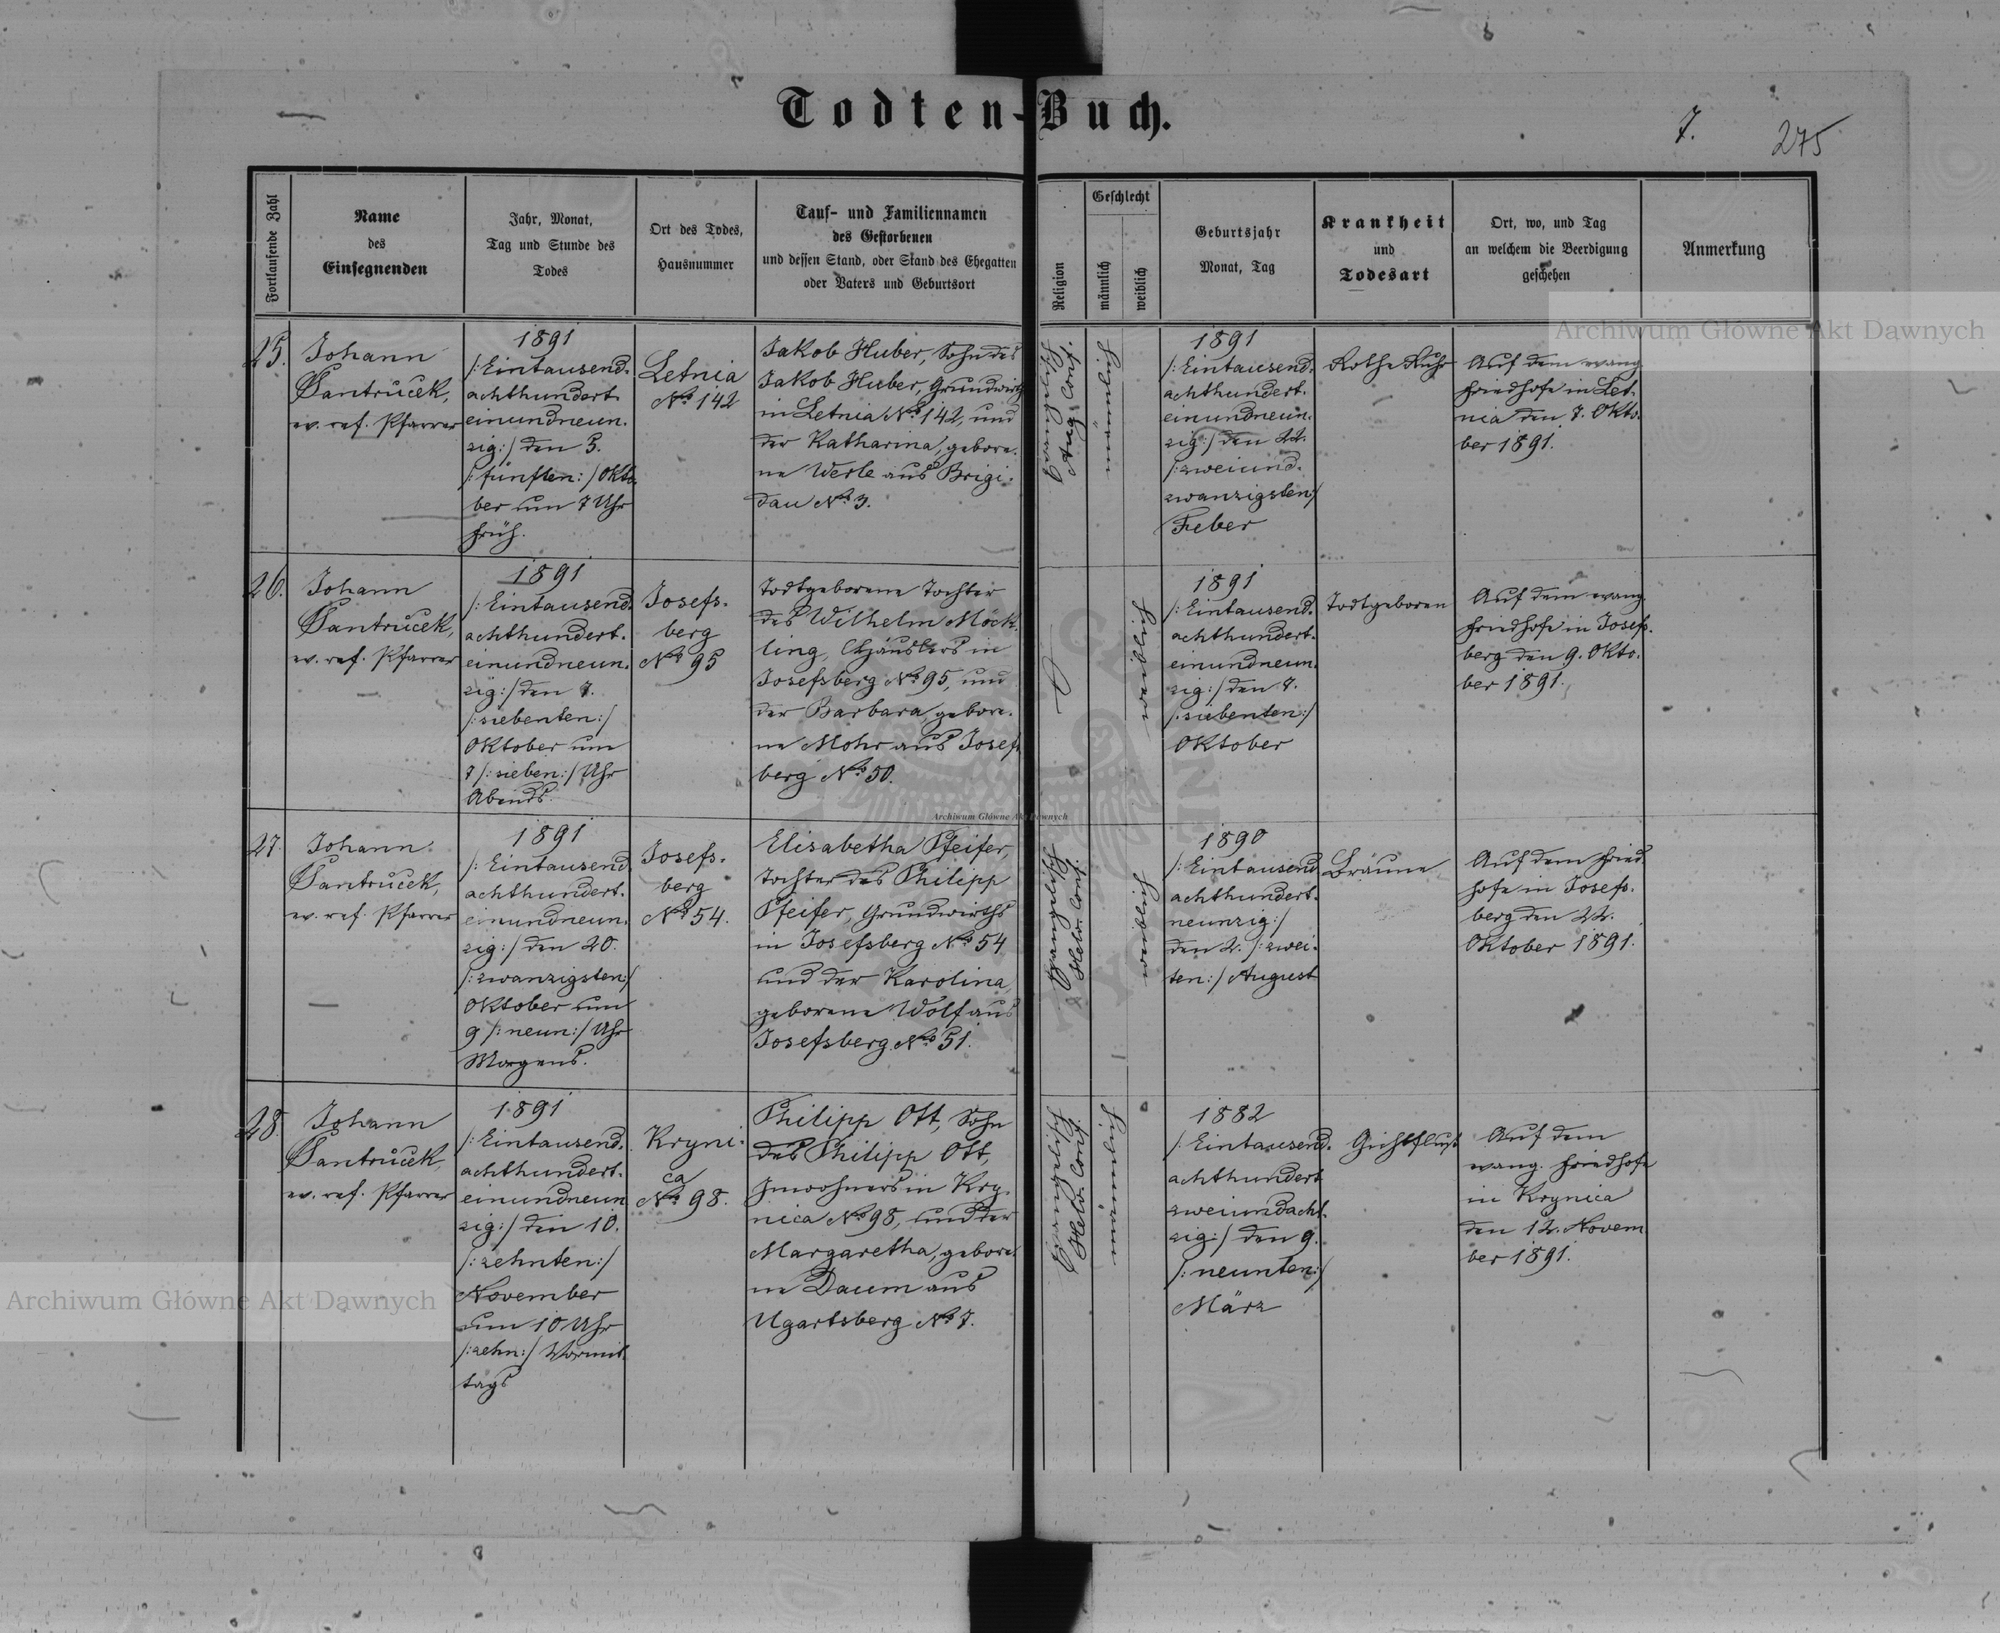 Todten-Buch.
7.
275
Fortlaufende Zahl
Name
des
Einsegnenden
Jahr, Monat,
Tag und Stunde des
Todes
Ort des Todes,
Hausnummer
Tauf- und Familiennamen
des Gestorbenen
und dessen Stand, oder Stand des Ehegatten
oder Vaters und Geburtsort
Religion
Geschlecht
männlich
weiblich
Geburtsjahr
Monat, Tag
Krankheit
und
Todesart
Ort, wo, und Tag
an welchem die Beerdigung
geschehen
Anmerkung
25.
Johann
Šantrůček,
ev. ref. Pfarrer
1891
/: Eintausend-
achthundert-
einundneun-
zig :/ den 5.
/: fünften :/ Okto-
ber um 7 Uhr
früh.
Letnia
No 142
Jakob Huber, Sohn des
Jakob Huber, Grundwirth
in Letnia No 142, und
der Katharina, gebore-
ne Werle aus Brigi-
dau No 3.
Evangelisch
Aug. Conf.
männlich
1891
/: Eintausend-
achthundert-
einundneun-
zig :/ den 22.
/: zweiund-
zwanzigsten :/
Feber
Rothe Ruhr
Auf dem evang.
Friedhofe in Let-
nia den 7. Okto-
ber 1891.
26.
Johann
Šantrůček,
ev. ref. Pfarrer
1891
/: Eintausend-
achthundert-
einundneun-
zig :/ den 7.
/: siebenten :/
Oktober um
7 /: sieben :/ Uhr
Abends.
Josefs-
berg
No 95
Todtgeborene Tochter
des Wilhelm Möck-
ling, Häuslers in
Josefsberg No 95, und
der Barbara, gebore-
ne Mohr aus Josefs-
berg No 50.
weiblich
1891
/: Eintausend-
achthundert-
einundneun-
zig :/ den 7.
/: siebenten :/
Oktober
Todtgeboren
Auf dem evang.
Friedhofe in Josefs-
berg den 9. Okto-
ber 1891.
27.
Johann
Šantrůček,
ev. ref. Pfarrer
1891
/: Eintausend-
achthundert-
einundneun-
zig :/ den 20.
/: zwanzigsten :/
Oktober um
9 /: neun :/ Uhr
Morgens.
Josefs-
berg
No 54.
Elisabetha Pfeifer,
Tochter des Philipp
Pfeifer, Grundwirths
in Josefsberg No 54
und der Karolina,
geborene Wolf aus
Josefsberg No 51.
Evangelisch
Helv. Conf.
weiblich
1890
/: Eintausend
achthundert-
neunzig :/
den 2. /: zwei-
ten :/ August
Bräune
Auf dem Fried-
hofe in Josefs-
berg den 22.
Oktober 1891.
28.
Johann
Šantrůček,
ev. ref. Pfarrer
1891
/: Eintausend-
achthundert-
einundneun
zig :/ den 10.
/: zehnten :/
November
um 10 Uhr
/: zehn :/ Vormit-
tags
Kryni-
ca
No 98.
Philipp Ott, Sohn
des Philipp Ott,
Inwohners in Kry-
nica No 98, und der
Margaretha, gebore-
ne Daum aus
Ugartsberg No 7.
Evangelisch
Helv. Conf.
männlich
1882
/: Eintausend-
achthundert
zweiundacht-
zig :/ den 9.
/: neunten :/
März
Gichtfluß
Auf dem
evang. Friedhofe
in Krynica
den 12. Novem-
ber 1891.
Archiwum Główne Akt Dawnych
Archiwum Główne Akt Dawnych
Archiwum Główne Akt Dawnych